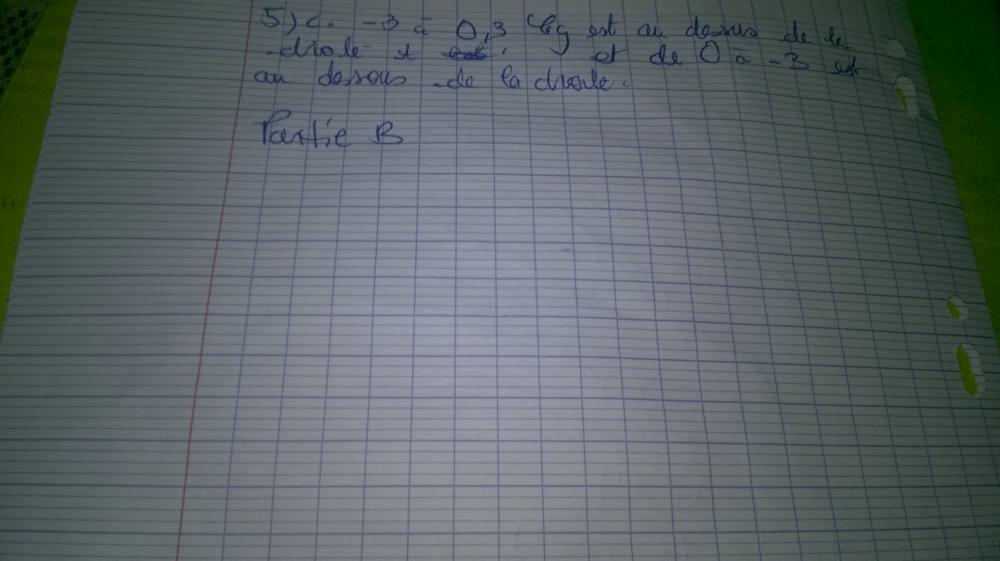 5) c. -3 à 0,3 Cg est au dessus de de
droite et de 0 à -3 est
au dessous de la droite.
Partie B